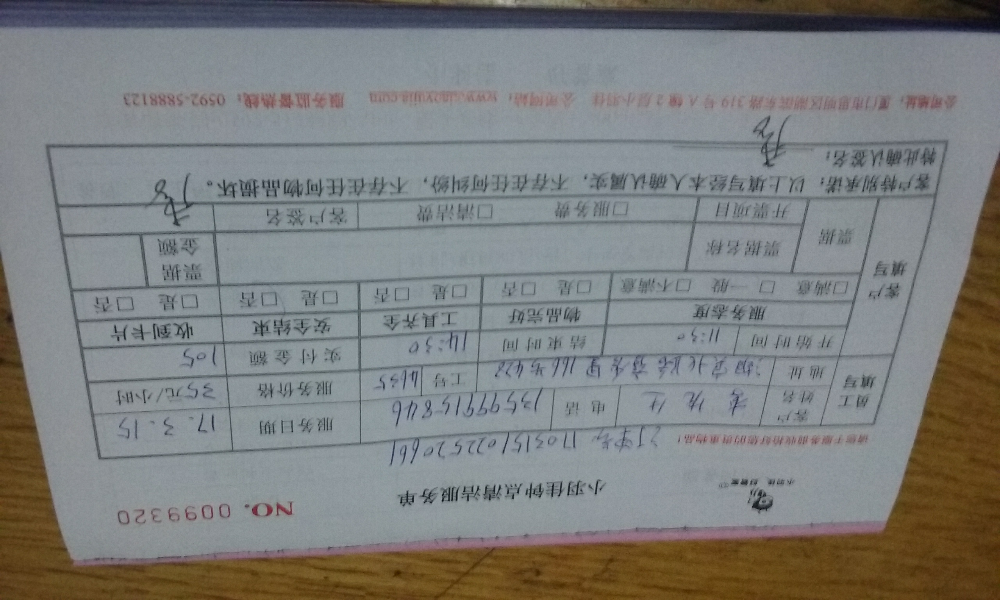 小羽佳钟点清洁服务单
NO. 0099320
请您于服务前收拾好您的贵重物品!
订单号 1703151022520661
员工填写
客户姓名
电话 13599915846
服务日期 17.3.15
地址
工号 4635
服务价格 35元/小时
开始时间 11:30 结束时间 14:30 实付金额 105
客户填写
服务态度 物品完好 工具齐全 安全结束 收到卡片
□满意 □一般 □不满意 □是 □否 □是 □否 □是 □否 □是 □否
票据 票据名称 票据金额
开票项目 □服务费 □清洁费 客户签名
客户特别承诺：以上填写经本人确认属实，不存在任何纠纷，不存在任何物品损坏。
特此确认签名：
公司地址：厦门市思明区湖滨东路319号A幢2层小羽佳 公司网站：www.xiaoyujia.com 服务监督热线：0592-5888123